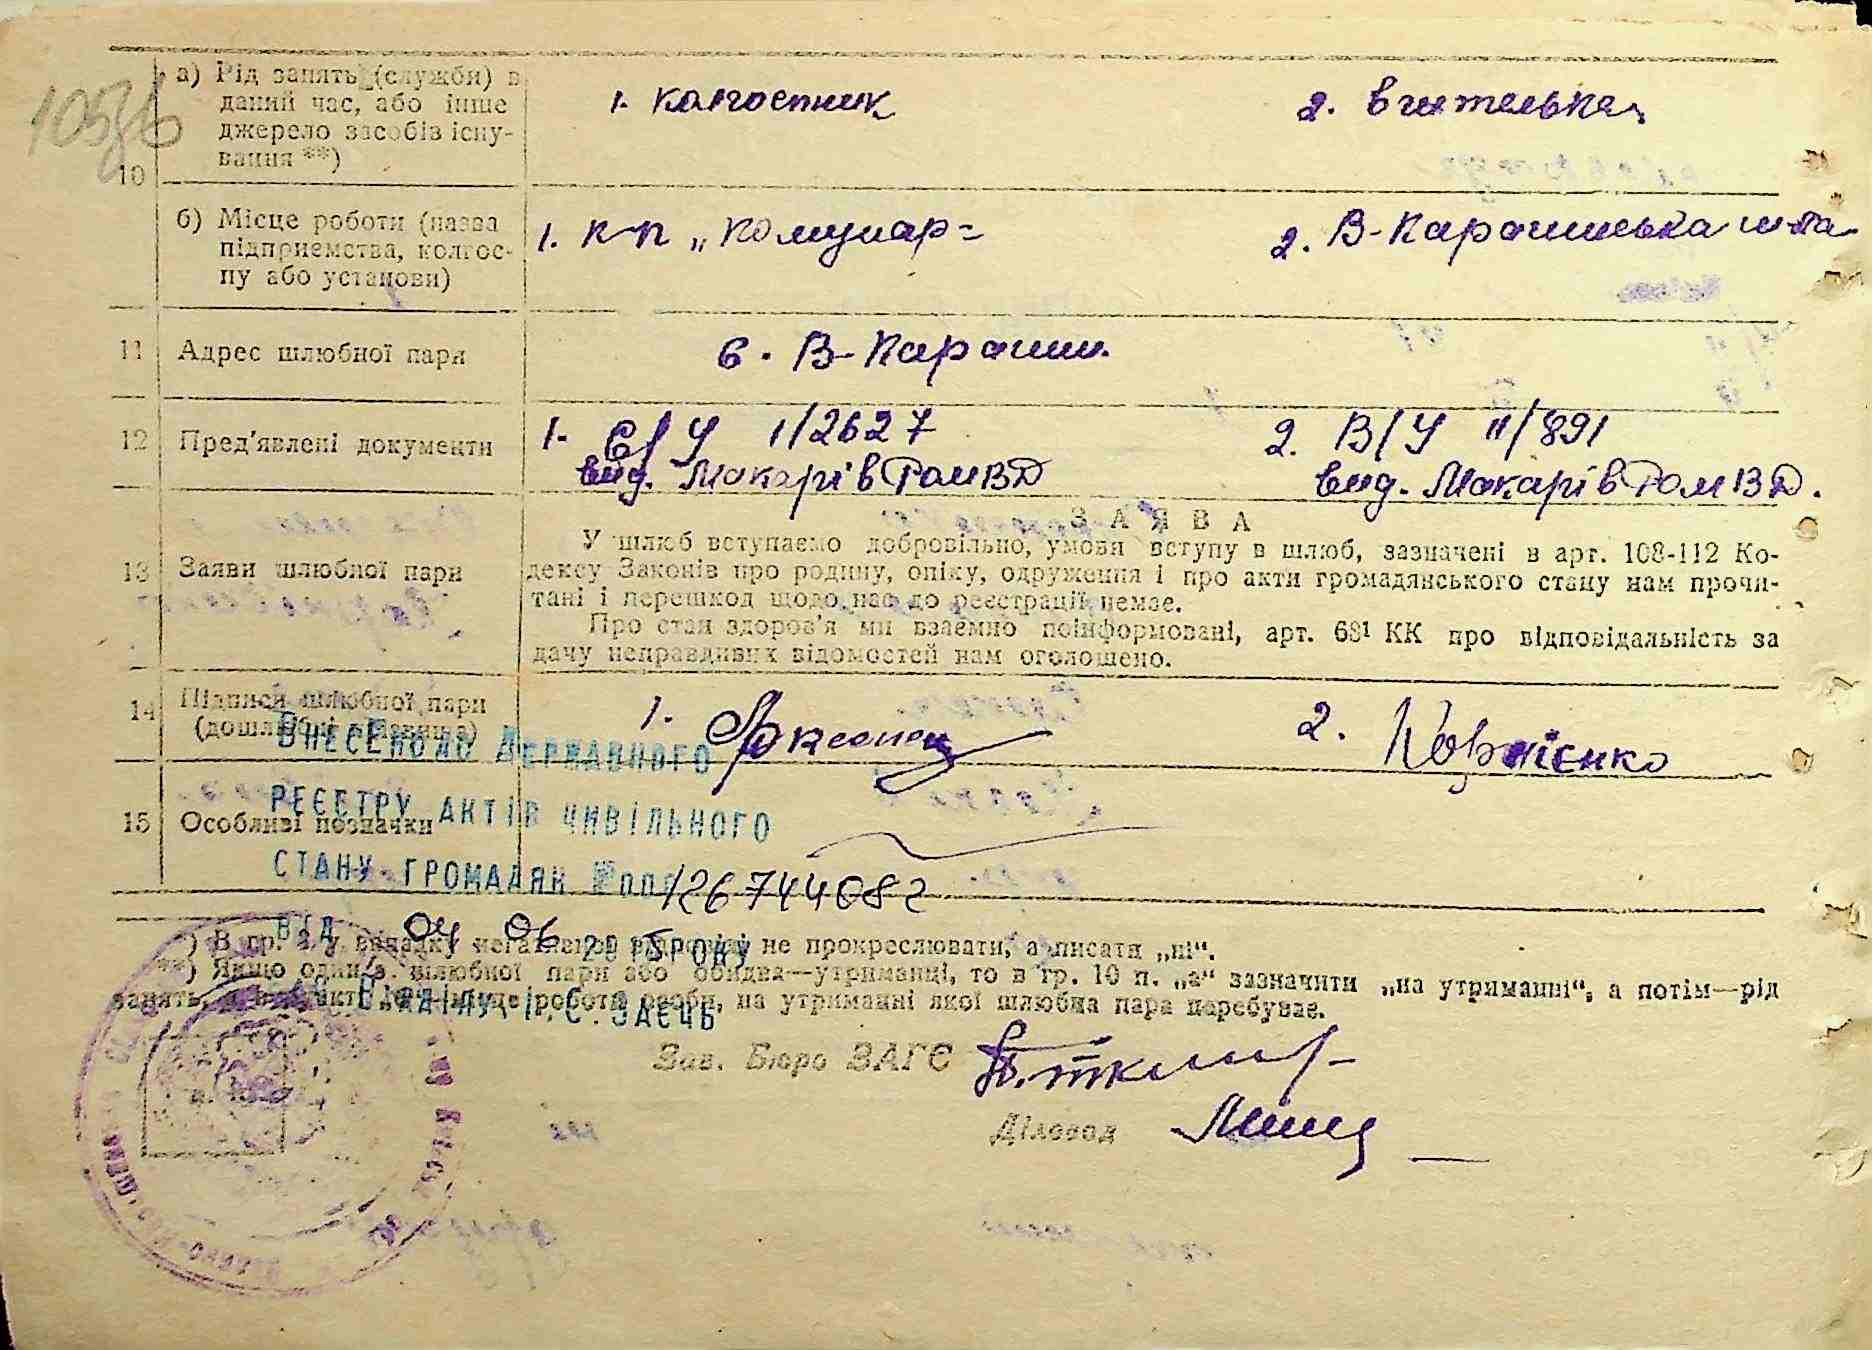 105зв
10
а) Рід занять (служби) в
даний час, або інше
джерело засобів існу-
вання **)
1. колгоспник
2. вчителька
б) Місце роботи (назва
підприємства, колгос-
пу або установи)
1. к-п „Комунар"
2. В-Карашинська шк-ла
11
Адрес шлюбної пари
с. В-Карашин.
12
Пред'явлені документи
1. В/У 1/2627
вид. Макарів РамВД
2. В/У II/891
вид. Макарів РамВД.
13
Заяви шлюбної пари
ЗАЯВА
У шлюб вступаємо добровільно, умови вступу в шлюб, зазначені в арт. 108-112 Ко-
дексу Законів про родину, опіку, одруження і про акти громадянського стану нам прочи-
тані і перешкод щодо нас до реєстрації немає.
Про стан здоров'я ми взаємно поінформовані, арт. 68¹ КК про відповідальність за
дачу неправдивих відомостей нам оголошено.
14
Підписи шлюбної пари
(дошлюбні прізвища)
1.
2. Корнієнко
15
Особливі позначки
ВНЕСЕНО ДО ДЕРЖАВНОГО
РЕЄСТРУ АКТІВ ЦИВІЛЬНОГО
СТАНУ ГРОМАДЯН №000126744082
ВІД 04 06 РОКУ
ВІДДІЛУ І.С. ЗАЄЦЬ
*) В гр. у випадку негативної відповіді не прокреслювати, а писати „ні".
**) Якщо один з шлюбної пари або обидва—утриманці, то в гр. 10 п. „а" зазначити „на утриманні", а потім—рід
занять, а в місце роботи особи, на утриманні якої шлюбна пара перебуває.
Зав. Бюро ЗАГС
Діловод